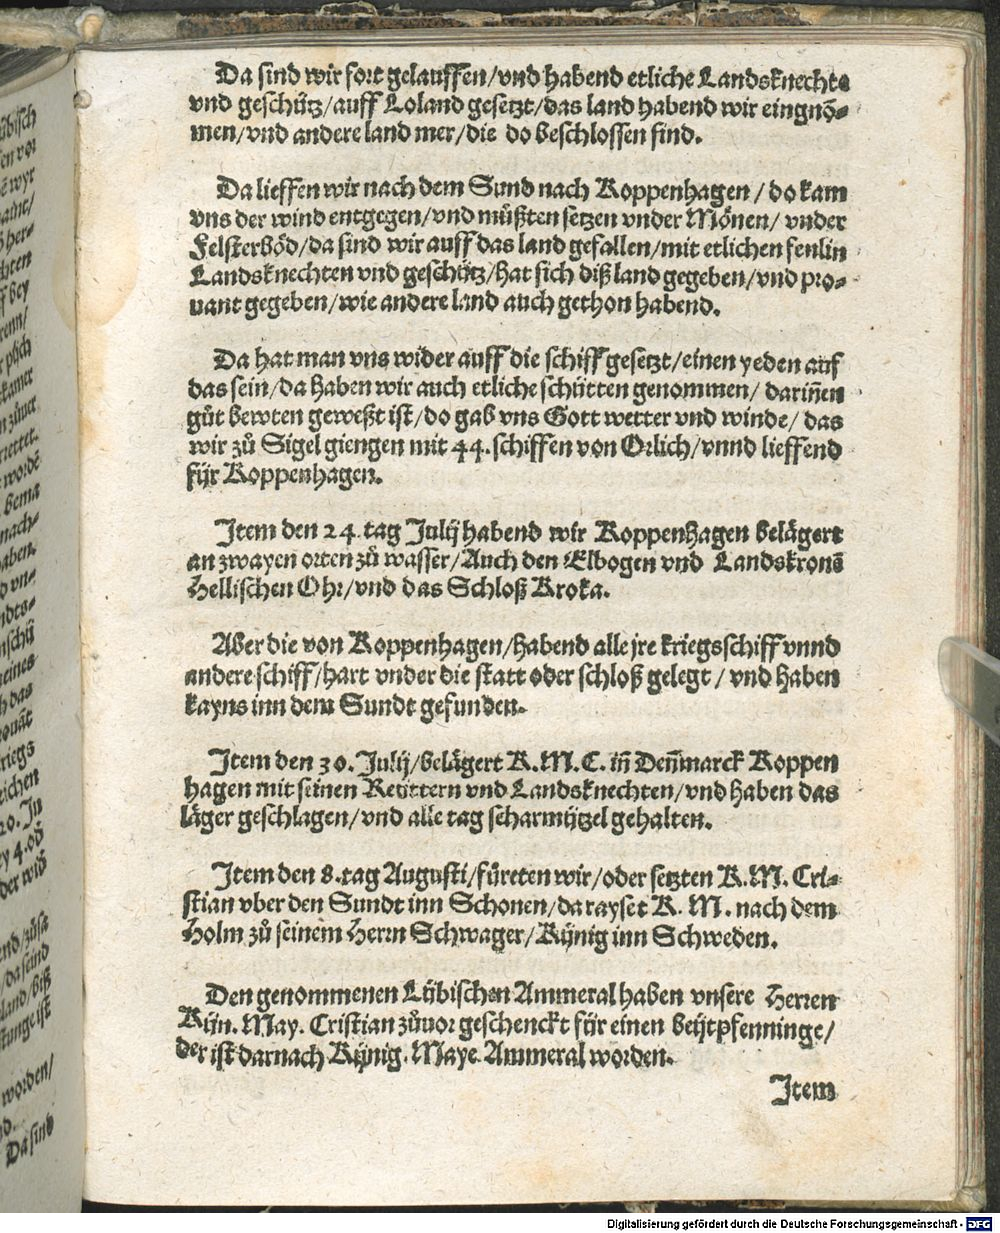 Da sind wir fort gelauffen/vnd habend etliche Landsknechte
vnd geschütz/auff Loland gesetzt/das land habend wir eingnõ-
men/vnd andere land mer/die do beschlossen sind.
Da lieffen wir nach dem Sund nach Koppenhagen/do kam
vns der wind entgegen/vnd müßten setzen vnder Mönen/vnder
Felsterbõd/da sind wir auff das land gefallen/mit etlichen fenlin
Landsknechten vnd geschütz/hat sich diß land gegeben/vnd pro-
uant gegeben/wie andere land auch gethon habend.
Da hat man vns wider auff die schiff gesetzt/einen yeden auf
das sein/da haben wir auch etliche schütten genommen/dariñen
gůt bewten geweßt ist/do gab vns Gott wetter vnd winde/das
wir zů Sigel giengen mit 44. schiffen von Orlich/vnnd lieffend
für Koppenhagen.
Item den 24. tag Julij habend wir Koppenhagen belägert
an zwayen orten zů wasser/Auch den Elbogen vnd Landskronẽ
Hellischen Ohr/vnd das Schloß Kroka.
Aber die von Koppenhagen/habend alle jre kriegsschiff vnnd
andere schiff/hart vnder die statt oder schloß gelegt/vnd haben
kayns inn dem Sundt gefunden.
Item den 30. Julij/belägert K.M.C. iñ Deñmarck Koppen
hagen mit seinen Reüttern vnd Landsknechten/vnd haben das
läger geschlagen/vnd alle tag scharmützel gehalten.
Item den 8.tag Augusti/füreten wir/oder setzten K.M. Cri-
stian vber den Sundt inn Schonen/da rayset K. M. nach dem
Holm zů seinem Herrn Schwager/Künig inn Schweden.
Den genommenen Lübischen Ammeral haben vnsere Herren
Kün. May. Cristian zůuor geschenckt für einen beütpfenninge/
der ist darnach Künig. Maye. Ammeral worden.
Item
Da sind
Digitalisierung gefördert durch die Deutsche Forschungsgemeinschaft - DFG